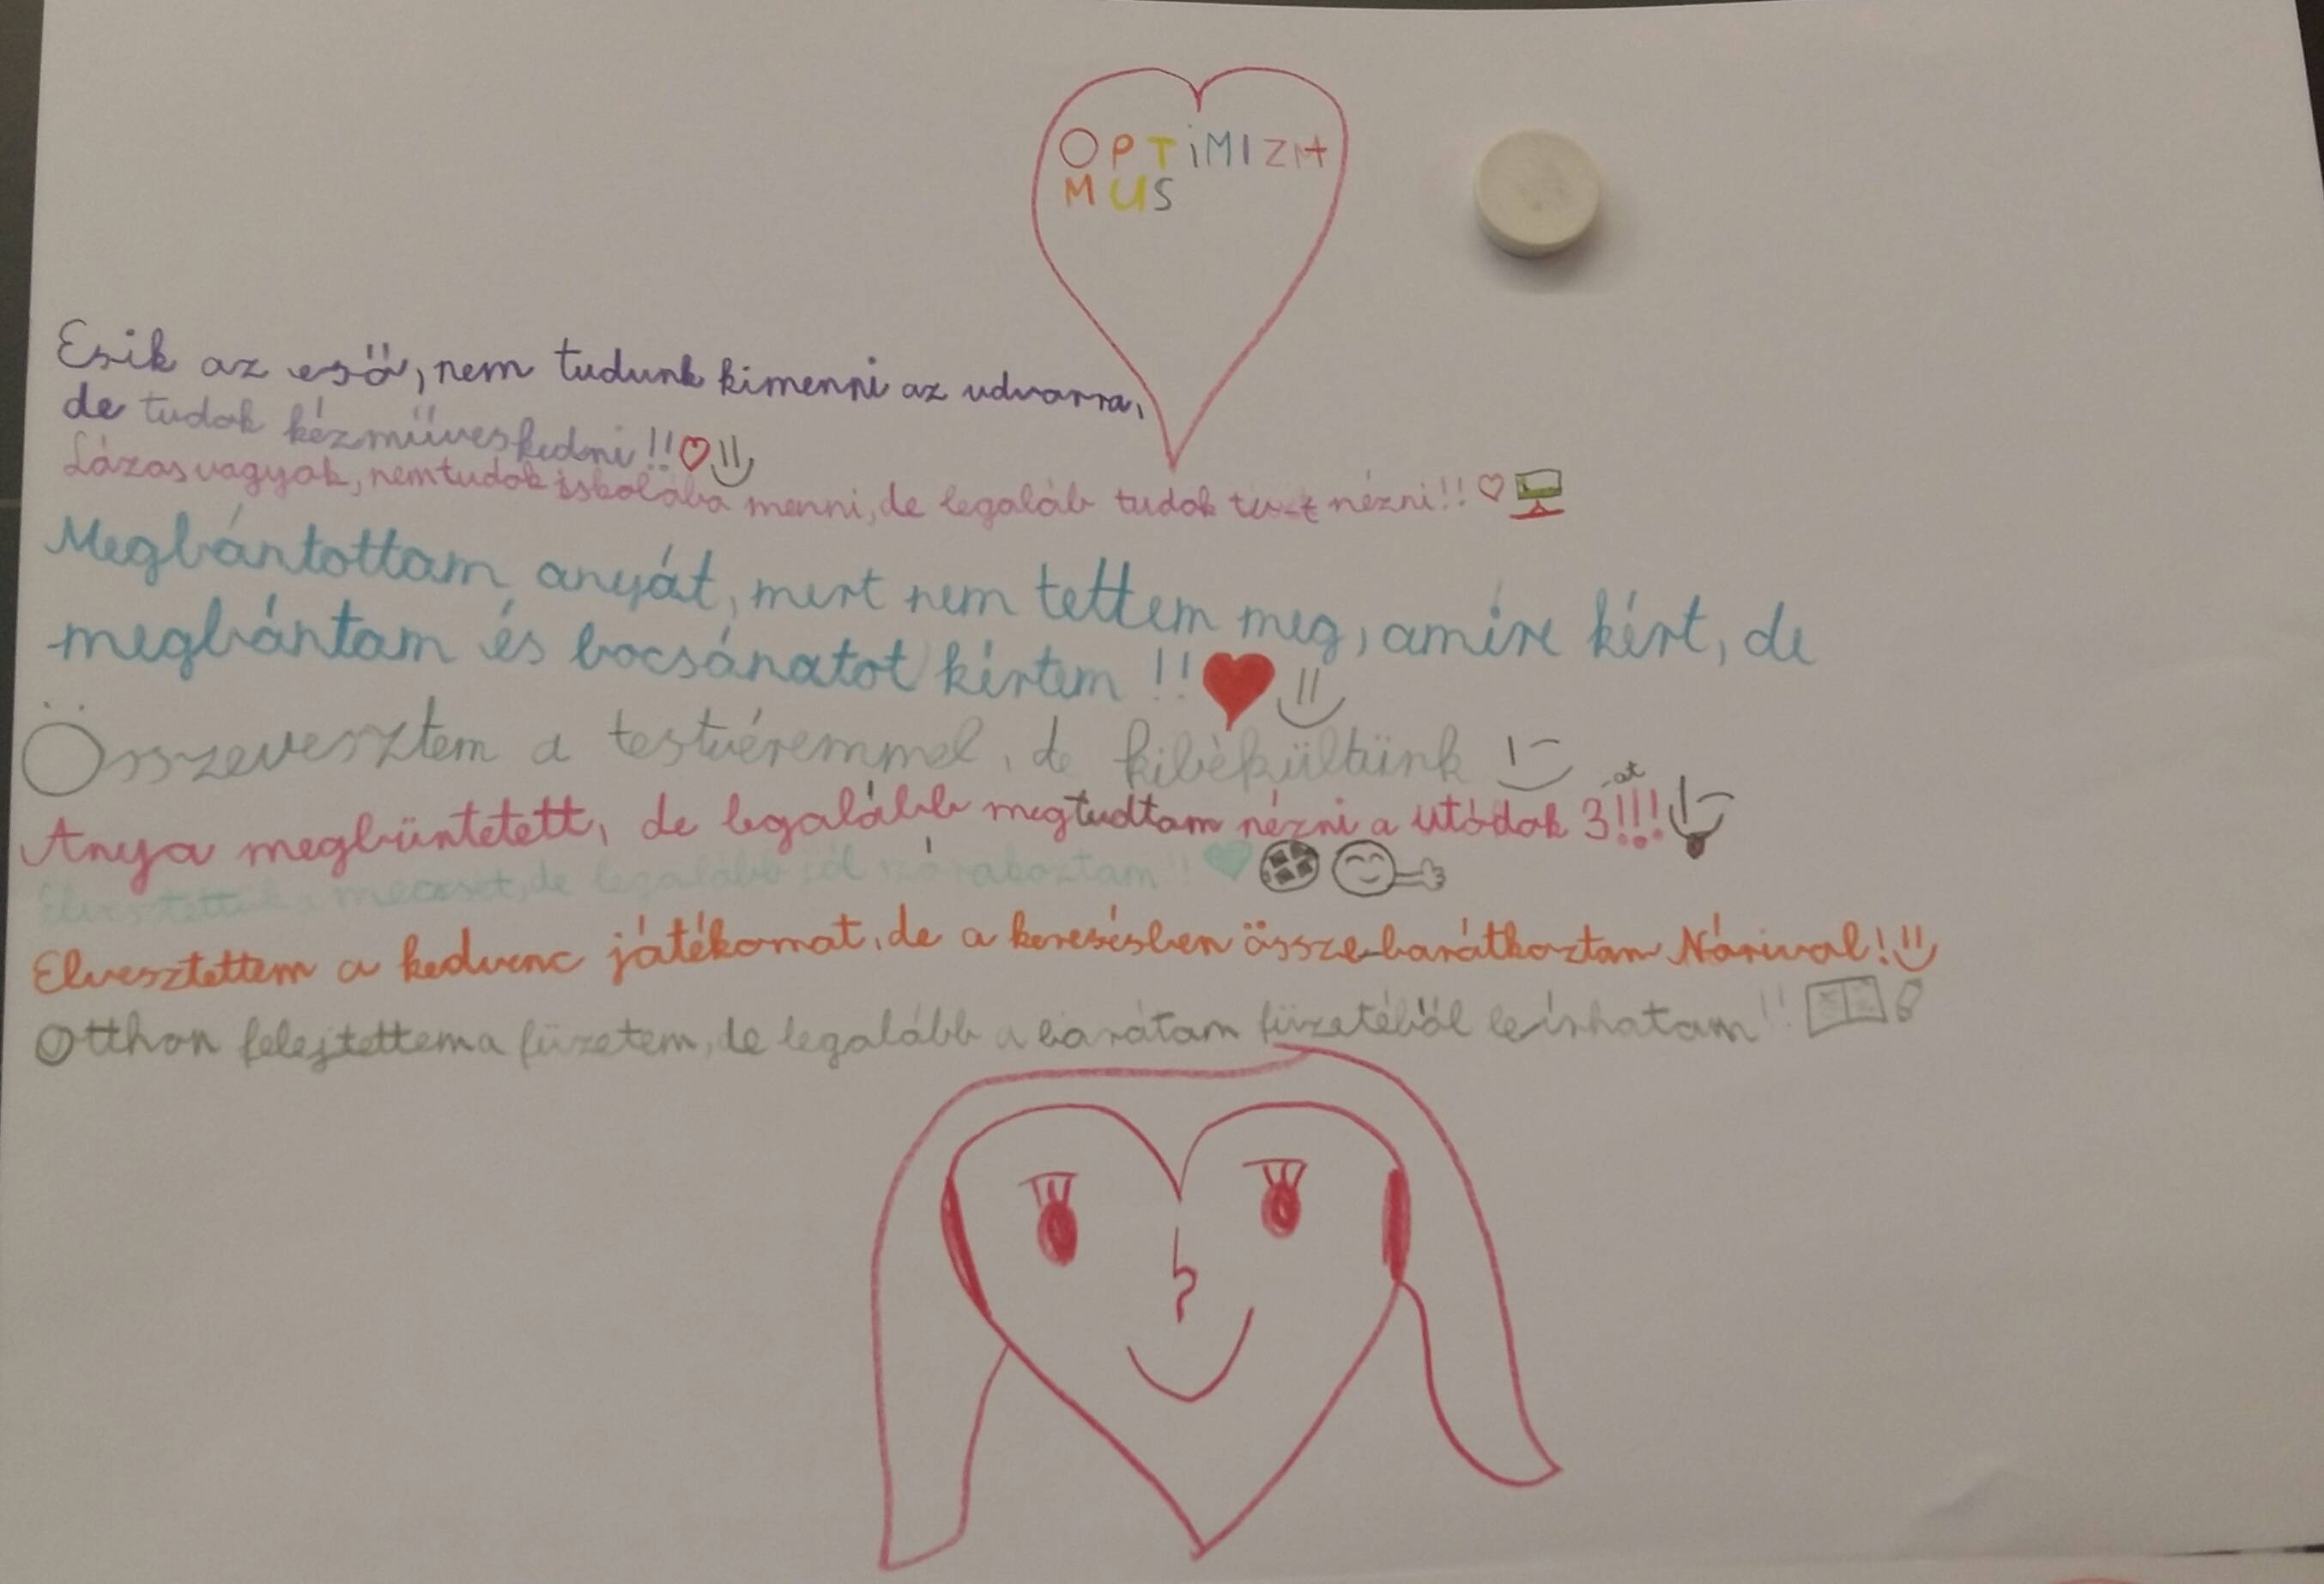 OPTiMIZM
MUS
Esik az eső, nem tudunk kimenni az udvarra,
de tudok kézműveskedni!!
Lázas vagyok, nem tudok iskolába menni, de legaláb tudok tv-t nézni!!
Megbántottam anyát, mert nem tettem meg, amire kért, de
megbántam és bocsánatot kértem!!
Összevesztem a testvéremmel, de kibékültünk
Anya megbüntetett, de legalább megtudtam nézni a utódok 3-at!!!
Elvesztettük a meccset, de legalább jól szórakoztam!!
Elvesztettem a kedvenc játékomat, de a keresésben össze-barátkoztam Nórival!
Otthon felejtettem a füzetem, de legalább a barátam füzetéből leírhatam!!